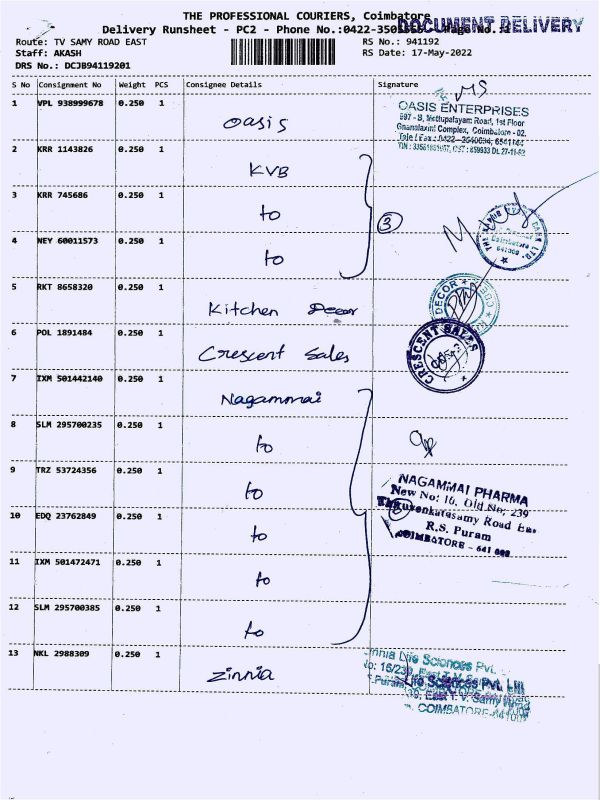 THE PROFESSIONAL COURIERS, Coimbatore
DOCUMENT DELIVERY
Delivery Runsheet - PC2 - Phone No.:0422- Page No.:
Route: TV SAMY ROAD EAST
RS No.: 941192
Staff: AKASH
RS Date: 17-May-2022
DRS No.: DCJB94119201
S No Consignment No Weight PCS Consignee Details Signature
1 VPL 938999678 0.250 1 Oasis
MS
OASIS ENTERPRISES
Mettupalayam Road, 1st Floor
Gnanalaxmi Complex, Coimbatore - 02.
2 KRR 1143826 0.250 1 KVB
3 KRR 745686 0.250 1 to
3
4 NEY 60011573 0.250 1 to
5 RKT 8658320 0.250 1 Kitchen Decor
DECOR
6 POL 1891484 0.250 1 Crescent Sales
CRESCENT SALES
7 IXM 501442140 0.250 1 Nagammai
8 SLM 295700235 0.250 1 to
9 TRZ 53724356 0.250 1 to
NAGAMMAI PHARMA
New No: 16, Old No: 239
Thiruvenkatasamy Road East
R.S. Puram
COIMBATORE - 641 002
10 EDQ 23762849 0.250 1 to
11 IXM 501472471 0.250 1 to
12 SLM 295700385 0.250 1 to
13 NKL 2988309 0.250 1 Zinnia
Zinnia Life Sciences Pvt.
Life Sciences Pvt. Ltd
East T. V. Samy Road
COIMBATORE-641002